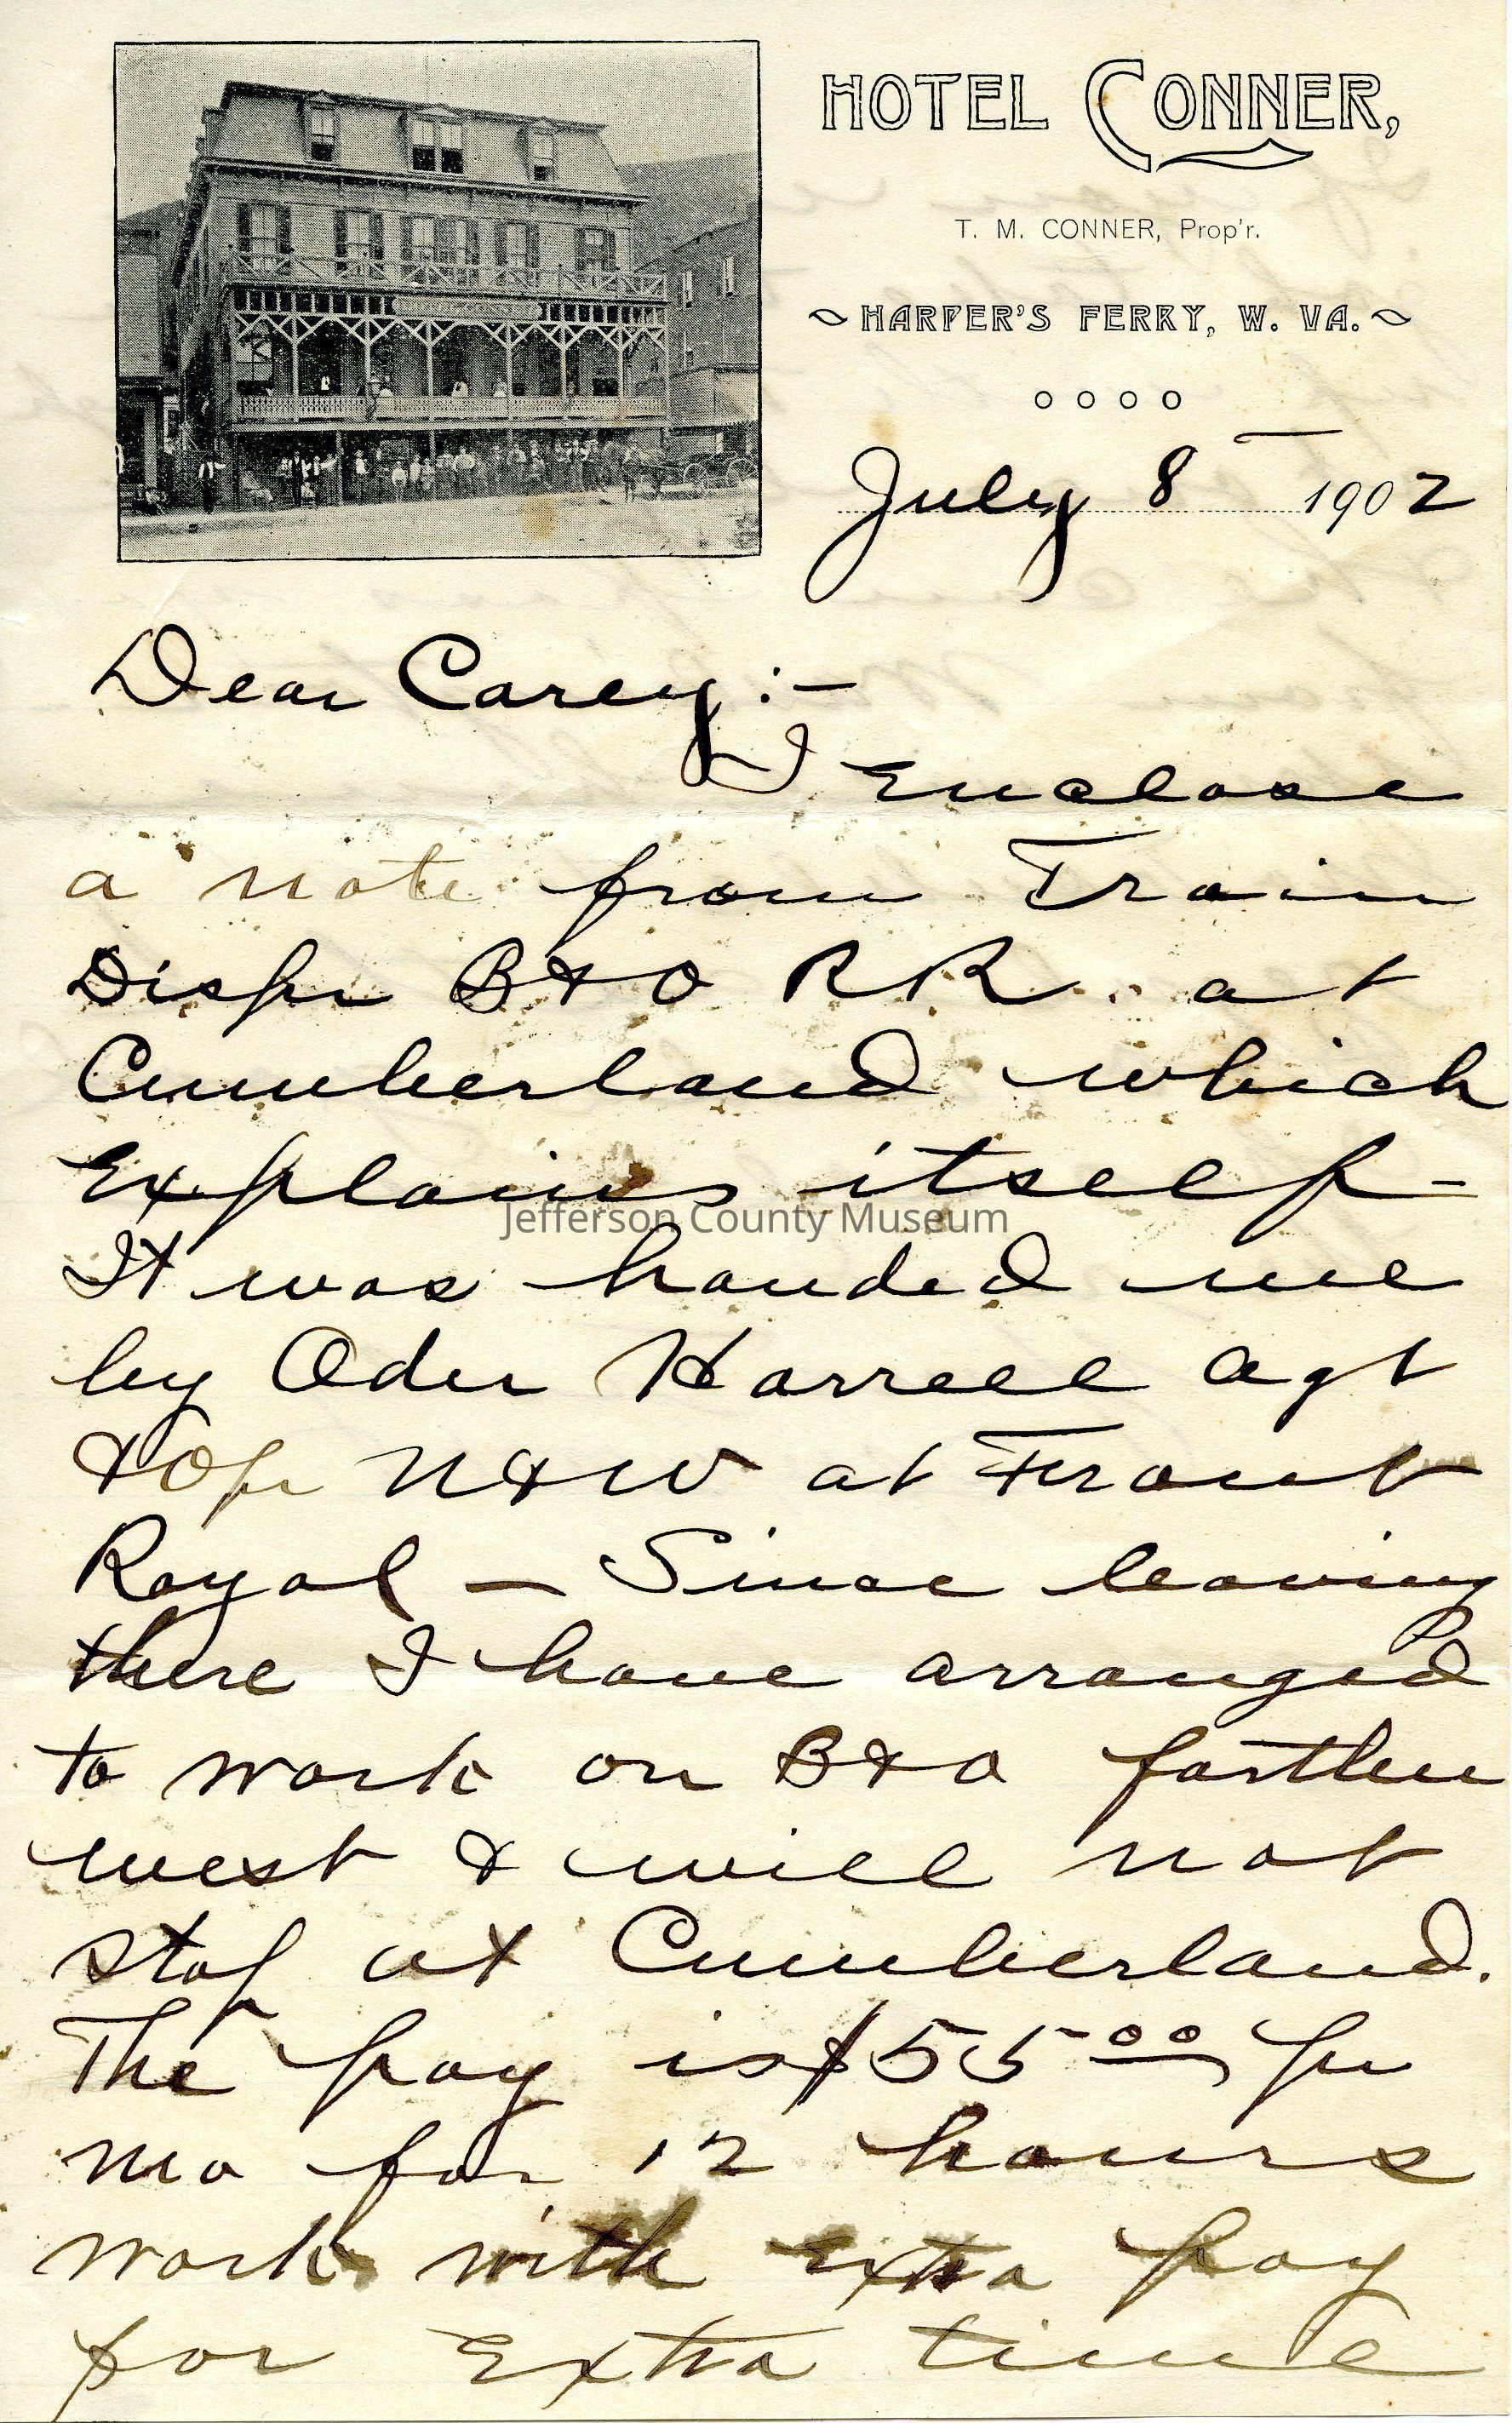 HOTEL CONNER,
T. M. CONNER, Prop'r.
HARPER'S FERRY, W. VA.
July 8 1902
Dear Carey:-
I Enclose
a note from Train
Dispr B&O RR. at
Cumberland which
Explains itself-
Jefferson County Museum
It was handed me
by Oder Harrell agt
& Opr N&W at Front
Royal — Since leaving
there I have arranged
to work on B&O farther
west & will not
stop at Cumberland.
The pay is $55 00 pr
mo for 12 hours
work with Extra pay
for Extra time